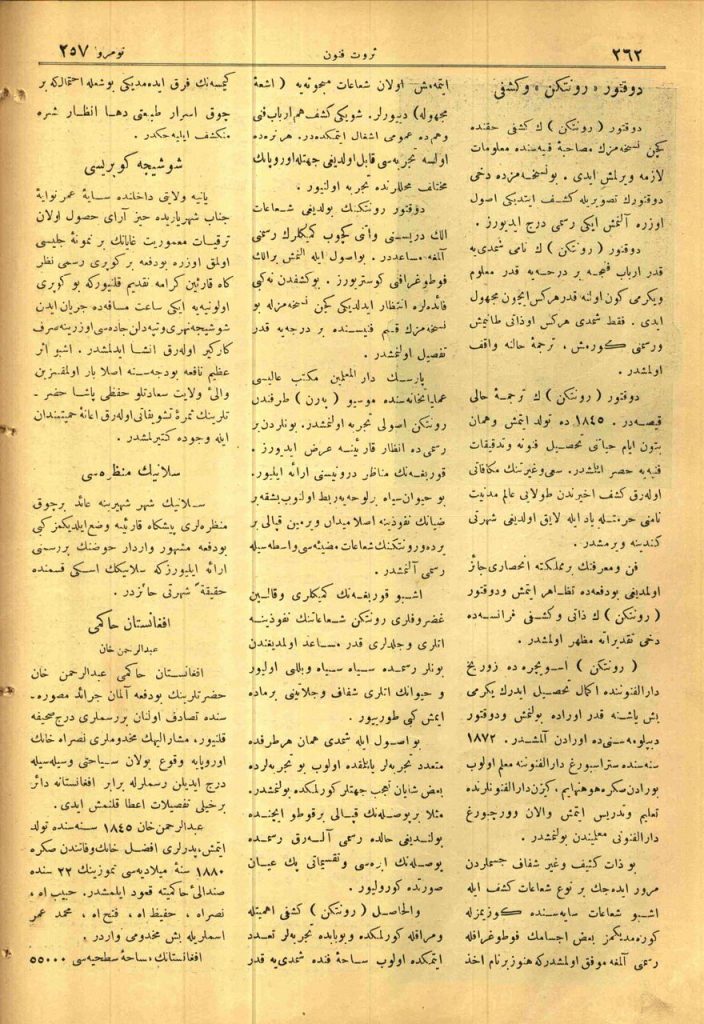 ٢٦٢
ثروت فنون
نومرو ٢٥٧
دوقتور « رونتكن » وكشفى
دوقتور ( رونتكن ) ك كشفى حقنده
كچن نسخه‌مزك مصاحبهٔ فنيه‌سنده معلومات
لازمه ويرلمش ايدى . بو نسخه‌مزده دخى
دوقتورك تصويريله كشف ايتديكى اصول
اوزره آلنمش ايكى رسمى درج ايديورز .
دوقتور ( رونتكن ) ك نامى شمدى‌يه
قدر ارباب فنجه بر درجه‌يه قدر معلوم
ويكرمى كون اولنه قدر هركس ايچون مجهول
ايدى . فقط شمدى هركس او ذاتى طانيمش
ورسمنى كورمش ، ترجمهٔ حالنه واقف
اولمشدر .
دوقتور ( رونتكن ) ك ترجمهٔ حالى
قيصه‌در . ١٨٤٥ ده تولد ايتمش وهمان
بتون ايام حياتنى تحصيل فنونه وتدقيقات
فنيه‌يه حصر ايتمشدر . سعى وغيرتنك مكافاتى
اوله‌رق كشف اخيرندن طولايى عالم مدنيت
نامنى حرمتله ياد ايله لايق اولديغى شهرتى
كندينه ويرمشدر .
فن ومعرفتك بر مملكته انحصارى جائز
اولمديغى بودفعه‌ده تظاهر ايتمش ودوقتور
( رونتكن ) ك ذاتى وكشفى فرانسه‌ده
دخى تقديراته مظهر اولمشدر .
( رونتكن ) اسويچره‌ده زوريخ
دارالفنوننده اكمال تحصيل ايدرك يكرمى
بش ياشنه قدر اوراده بولنمش ودوقتور
ديپلومه‌سنى ده اورادن آلمشدر . ١٨٧٢
سنه‌سنده ستراسبورغ دارالفنوننه معلم اولوب
بورادن سكره هوهنهايم ، كيزن دارالفنونلرنده
تعليم وتدريس ايتمش والآن وورچبورغ
دارالفنونى معلميندن بولنمشدر .
بو ذات كثيف وغير شفاف جسملردن
مرور ايده‌جك بر نوع شعاعات كشف ايله
اشبو شعاعات سايه‌سنده كوزيمزله
كوره‌مديكمز بعض اجسامك فوطوغرافله
رسمنى آلمغه موفق اولمشدر كه هنوز بر نام اخذ
ايتمه‌مش اولان شعاعات مبحوثه‌يه ( اشعهٔ
مجهوله ) ديييورلر . شو يكى كشف هم ارباب فنى
وهم ده عمومى اشغال ايتمكده‌در . هر نره‌ده
اولسه تجربه‌سى قابل اولديغى جهتله اوروپانك
مختلف محللرنده تجربه اولنيور .
دوقتور رونتكنك بولديغى شعاعات
الك دريسنى واتنى كچوب كميكلرك رسمنى
آلمغه مساعددر . بو اصول ايله آلنمش بر الك
فوطوغرافنى كوستريورز . بو كشفدن نه كبى
فائده‌لره انتظار ايدلديكى كچن نسخه‌مزله بو
نسخه‌مزك قسم فنيسنده بر درجه‌يه قدر
تفصيل اولنمشدر .
پارسك دارالمعلمين مكتب عاليسى
عملياتخانه‌سنده موسيو ( پەرن ) طرفندن
رونتكن اصولى تجربه اولنمشدر . بونلردن بر
رسمى ده انظار قارئينه عرض ايديورز .
قوريغه‌نك مناظر درونيسنى ارائه ايليور .
بو حيوان سياه بر لوحه‌يه ربط اولنوب بشقه بر
ضيانك نفوذينه اصلا ميدان ويرمين قپالى بر
يرده و رونتكنك شعاعات مضيئه‌سى واسطه‌سيله
رسمى آلنمشدر .
اشبو قوريغه‌نك كميكلرى وقالين
غضروفلرى رونتكن شعاعاتنك نفوذينه
اتلرى وجلدلرى قدر مساعد اولمديغندن
بونلر رسمده سياه سياه وبللى اوليور
و حيوانك اتلرى شفاف وجلاتينى بر ماده
ايمش كبى طوريور .
بو اصول ايله شمدى همان هر طرفده
متعدد تجربه‌لر ياپلمقده اولوب بو تجربه‌لرده
بعض شايان تعجب جهتلر كورلمكده بولنمشدر .
مثلا بر پوصله‌نك قپالى بر قوطو ايچنده
بولنديغى حالده رسمى آلنه‌رق رسمده
پوصله‌نك ابره‌سى وتقسيماتى پك عيان
صورتده كوروليور .
والحاصل ( رونتكن ) كشفى اهميتله
ومراقله كورلمكده وبوبابده تجربه‌لر تعدد
ايتمكده اولوب ساحهٔ فنده شمدى‌يه قدر
كيمسه‌نك فرق ايده‌مديكى بو شعله احتمالكه بر
چوق اسرار طبيعتى دها انظار بشره
منكشف ايليه‌جكدر .
شوشيچه كوپريسى
يانيه ولايتى داخلنده سايهٔ عمرنوايهٔ
جناب شهرياريده حيز آراى حصول اولان
ترقيات معموريت غاياتك بر نمونهٔ جليسى
اولمق اوزره بودفعه بر كوپرى رسمنى نظر
كاه قارئين كرامه تقديم قلنيور كه بو كوپرى
اولونيه‌يه ايكى ساعت مسافه‌ده جريان ايدن
شوشيچه نهرى وتپه‌دلن جاده‌سى اوزرينه صرف
كاركير اوله‌رق انشا ايدلمشدر . اشبو اثر
عظيم نافعه بودجه‌سنه اصلا بار اولمقسزين
والىٔ ولايت سعادتلو حفظى پاشا حضر -
تلرينك ثمرهٔ تشويقاتى اوله‌رق اعانهٔ حميتمندان
ايله وجوده كتيرلمشدر .
سلانيك منظره‌سى
سلانيك شهر شهيرينه عائد برچوق
منظره‌لرى پيشكاه قارئينه وضع ايلديكمز كبى
بودفعه مشهور واردار حوضنك بر رسمنى
ارائه ايليورز كه سلانيكك اسكى قسمنده
حقيقةً شهرتى حائزدر .
افغانستان حاكمى
عبدالرحمن خان
افغانستان حاكمى عبدالرحمن خان
حضرتلرينك بودفعه آلمان جرائد مصوره -
سنده تصادف اولنان بر رسملرى درج صحيفه
قلنيور ، مشاراليهك مخدوملرى نصرالله خانك
اوروپايه وقوع بولان سياحتى وسيله‌سيله
درج ايديلن رسملرله برابر افغانستانه دائر
برخيلى تفصيلات اعطا قلنمش ايدى .
عبدالرحمن خان ١٨٤٥ سنه‌سنده تولد
ايتمش ، پدرلرى افضل خانك وفاتندن صكره
١٨٨٠ سنهٔ ميلاديه‌سى تموزينك ٢٢ سنده
صندالىٔ حاكميته قعود ايلمشدر . حبيب الله ،
نصرالله ، حفيظ الله ، فتح الله ، محمد عمر
اسملريله بش مخدومى واردر .
افغانستانك ، ساحهٔ سطحيه‌سى ٥٥٠٠٠